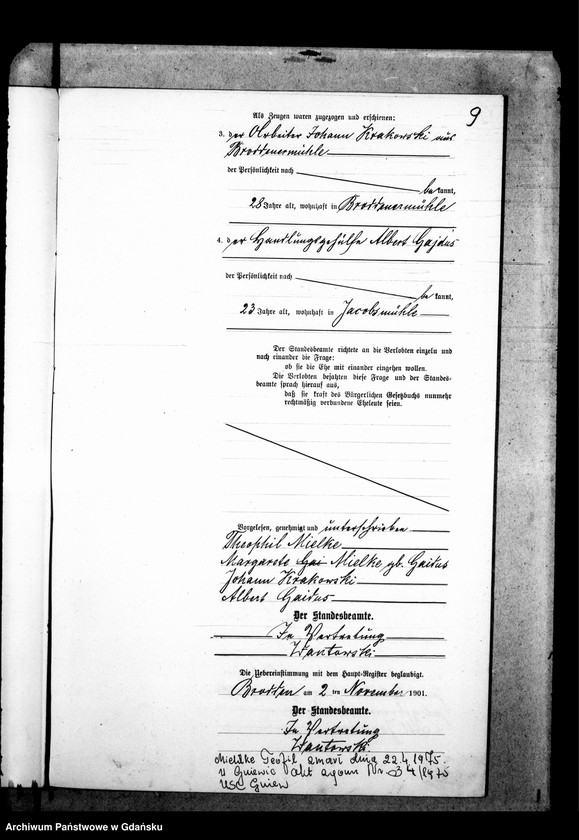 9
Als Zeugen waren zugezogen und erschienen:
3. der Arbeiter Johann Krakowski aus
Broddenermühle
der Persönlichkeit nach
be kannt,
28 Jahre alt, wohnhaft in Broddenermühle
4. der Handlungsgehülfe Albert Gajdus
der Persönlichkeit nach
be kannt,
23 Jahre alt, wohnhaft in Jacobsmühle
Der Standesbeamte richtete an die Verlobten einzeln und
nach einander die Frage:
ob sie die Ehe mit einander eingehen wollen.
Die Verlobten bejahten diese Frage und der Standes-
beamte sprach hierauf aus,
daß sie kraft des Bürgerlichen Gesetzbuchs nunmehr
rechtmäßig verbundene Eheleute seien.
Vorgelesen, genehmigt und unterschrieben
Theophil Mielke
Margarete Gai Mielke, gb. Gaidus
Johann Krakowski
Albert Gaidus
Der Standesbeamte.
In Vertretung
Wantowski
Die Uebereinstimmung mit dem Haupt-Register beglaubigt.
Brodden am 2 ten November 1901.
Der Standesbeamte.
In Vertretung
Wantowski.
Mielke Teofil zmarł dnia 22.4.1975.
w Gniewie akt zgonu Nr. 34/1975
USC Gniew
Archiwum Państwowe w Gdańsku